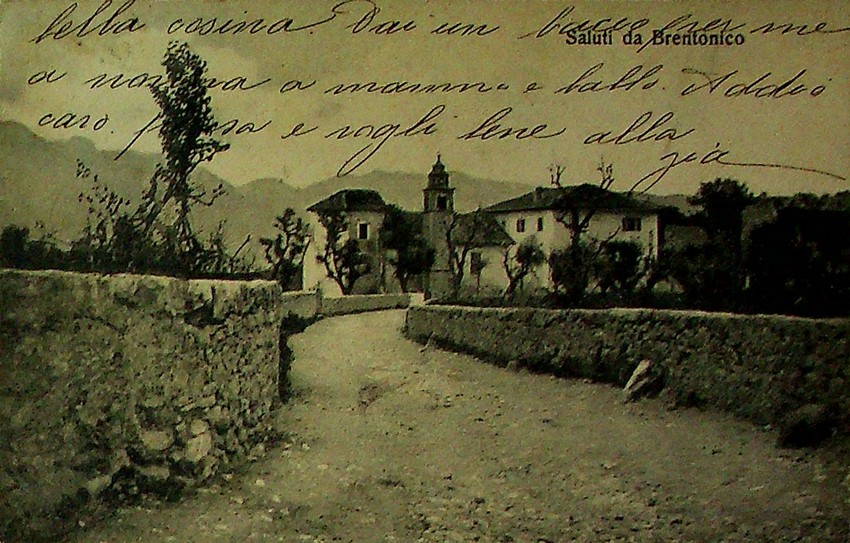 bella cosina. Dai un bacio per me
Saluti da Brentonico
a nonna a mamma e ballo. Addio
caro. passa e vogli bene alla
zia